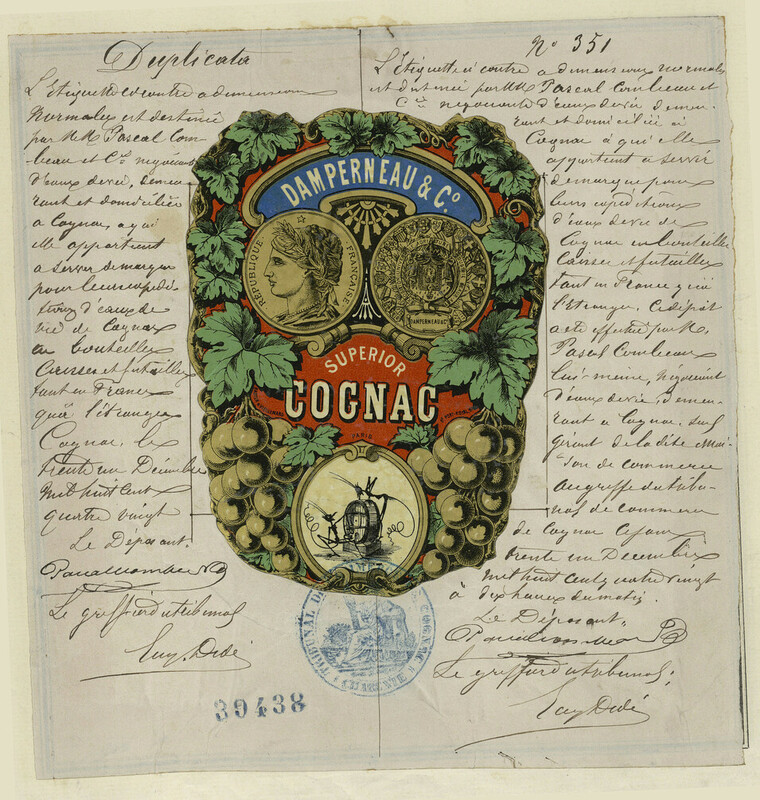 Duplicata
L'Etiquette ci contre a dimensions
Normales est destinée
par MM. Pascal Com-
beau et Cie négociants
d'eaux de vie, demeu-
rant et domiciliés
a Cognac, a qui
elle appartient
a servir de marque
pour leurs expédi-
tions d'eaux de
vie de Cognac
en bouteilles
Caisses et futailles
tant en France
qu'à l'étranger
Cognac, le
trente un Décembre
mil huit cent
quatre vingt
Le Déposant.
Pascal Combeau
Le greffier du tribunal
Eug. Didé
No 351
L'Etiquette ci contre a dimensions normales
est destinée par MM. Pascal Combeau et
Cie négociants d'eaux de vie demeu-
rant et domiciliés à
Cognac à qui elle
appartient a servir
de marque pour
leurs expéditions
d'eaux de vie de
Cognac en bouteilles
Caisses et futailles
tant en France qu'à
l'Etranger. Ce dépôt
a été effectué par M.
Pascal Combeau
lui-même, négociant
d'eaux de vie, demeu-
rant a Cognac, seul
gérant de la dite Mai-
son de commerce
au greffe du tribu-
nal de commerce
de Cognac ce jour
trente un Décembre
mil huit cent quatre vingt
à dix heures du matin.
Le Déposant.
Pascal Combeau
Le greffier du tribunal;
Eug Didé
DAMPERNEAU & Co
REPUBLIQUE FRANÇAISE
DAMPERNEAU & Co
SUPERIOR
COGNAC
PARIS
TRIBUNAL DE COGNAC
CHARENTE
39438